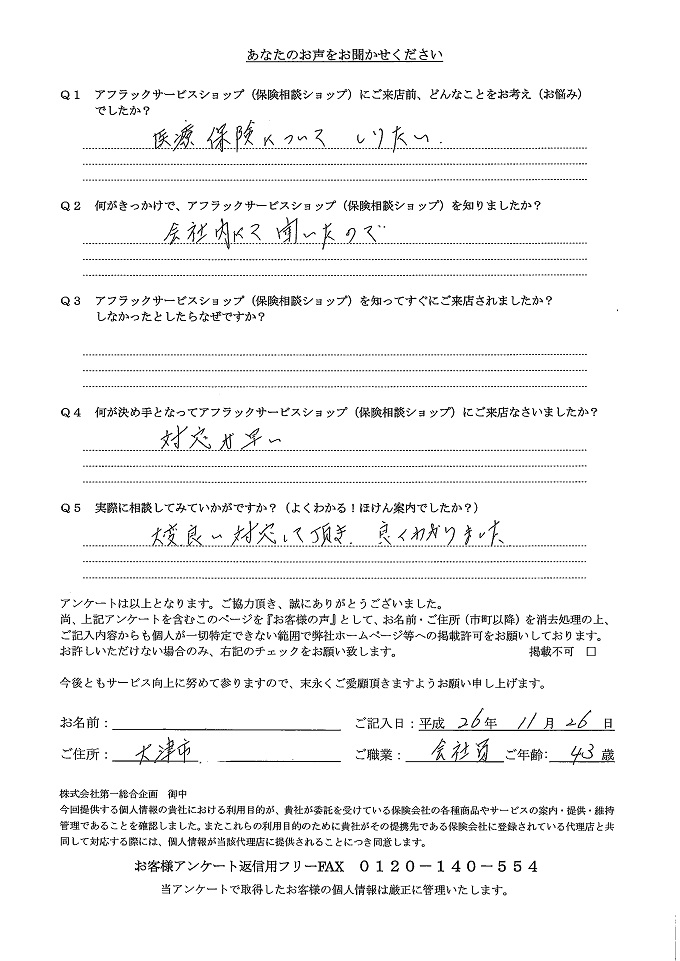 あなたのお声をお聞かせください
Q1 アフラックサービスショップ（保険相談ショップ）にご来店前、どんなことをお考え（お悩み）
でしたか？
医療保険について しりたい.
Q2 何がきっかけで、アフラックサービスショップ（保険相談ショップ）を知りましたか？
会社内にて聞いたので
Q3 アフラックサービスショップ（保険相談ショップ）を知ってすぐにご来店されましたか？
しなかったとしたらなぜですか？
Q4 何が決め手となってアフラックサービスショップ（保険相談ショップ）にご来店なさいましたか？
対応が早い
Q5 実際に相談してみていかがですか？（よくわかる！ほけん案内でしたか？）
大変良い対応して頂き. 良くわかりました
アンケートは以上となります。ご協力頂き、誠にありがとうございました。
尚、上記アンケートを含むこのページを『お客様の声』として、お名前・ご住所（市町以降）を消去処理の上、
ご記入内容からも個人が一切特定できない範囲で弊社ホームページ等への掲載許可をお願いしております。
お許しいただけない場合のみ、右記のチェックをお願い致します。 掲載不可 □
今後ともサービス向上に努めて参りますので、末永くご愛顧頂きますようお願い申し上げます。
お名前： ご記入日：平成 26年 11月 26日
ご住所： 大津市 ご職業： 会社員 ご年齢： 43歳
株式会社第一総合企画 御中
今回提供する個人情報の貴社における利用目的が、貴社が委託を受けている保険会社の各種商品やサービスの案内・提供・維持
管理であることを確認しました。またこれらの利用目的のために貴社がその提携先である保険会社に登録されている代理店と共
同して対応する際には、個人情報が当該代理店に提供されることにつき同意します。
お客様アンケート返信用フリーFAX 0120－140－554
当アンケートで取得したお客様の個人情報は厳正に管理いたします。